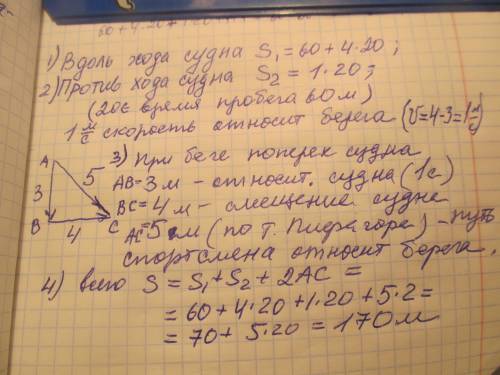 60+4·20+1·20
1) Вдоль хода судна S₁=60+4·20;
2) Против хода судна S₂=1·20;
(20с время пробега 60м)
1 м/с скорость относит берега (υ=4-3=1 м/с)
3) При беге поперек судна
A
AB=3м - относит. судна (1с)
3
5
BC=4м - смещение судна
B
4
C
AC=5м (по т. Пифагора) - путь
спортсмена относит берега.
4) всего S=S₁+S₂+2AC=
=60+4·20+1·20+5·2=
=70+5·20=170м